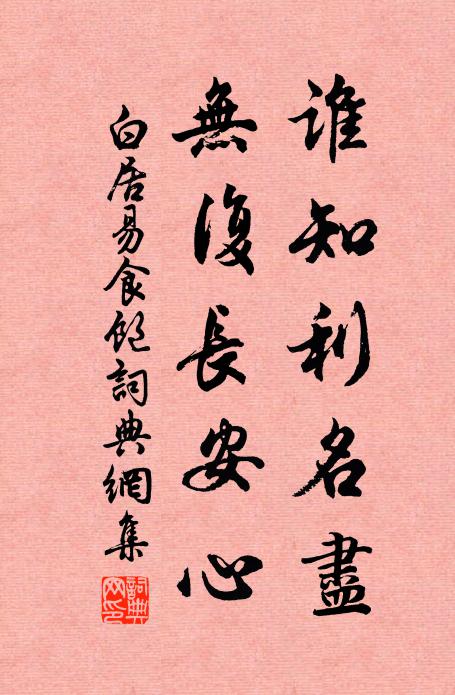 誰知利名盡
無復長安心
白居易食飽詞典網集
詞典網印